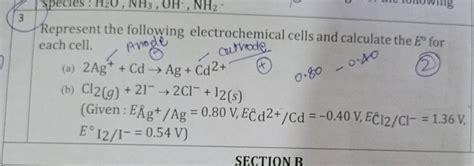 species : H2O, NH3, OH⁻, NH2⁻
following
3
Represent the following electrochemical cells and calculate the E° for
each cell.
Anode
cathode
(a) 2Ag⁺ + Cd → Ag + Cd²⁺
0.80 – 0.40
2
(b) Cl2(g) + 2I⁻ → 2Cl⁻ + I2(s)
(Given : E°Ag⁺/Ag = 0.80 V, E°Cd²⁺/Cd = -0.40 V, E°Cl2/Cl⁻ = 1.36 V,
E° I2/I⁻ = 0.54 V)
SECTION B